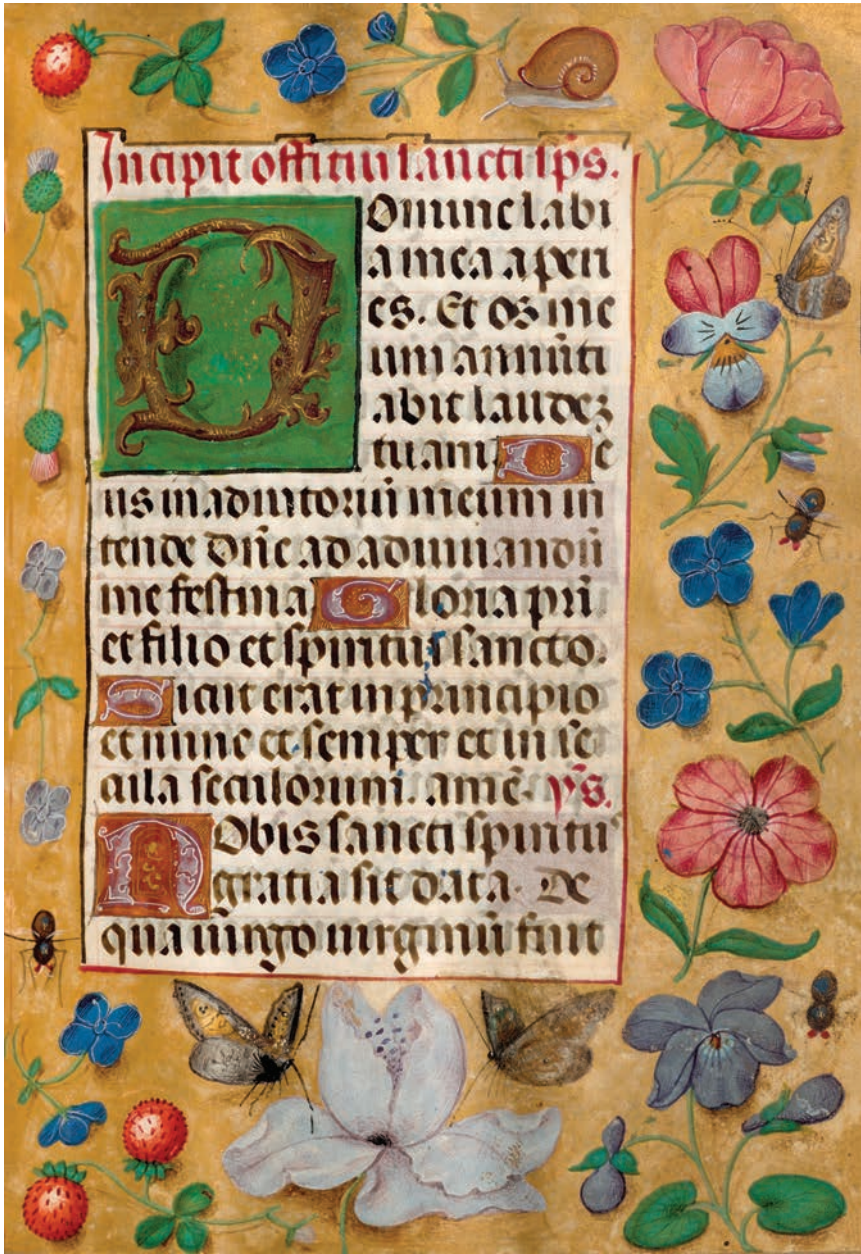 Incipit offitiū sancti sp̄s.
Domine labi
a mea aperi
es. Et os me
um annūti
abit laudez
tuam De
us in adiutoriū meum in
tende dn̄e ad adiuuandū
me festina Gloria pr̄i
et filio et spiritui sancto.
Sicut erat in principio
et nunc et semper et in se
cula seculorum. amē. yꝰs.
Nobis sancti spirituꝰ
gratia sit data. De
qua uirgo uirginū fuit